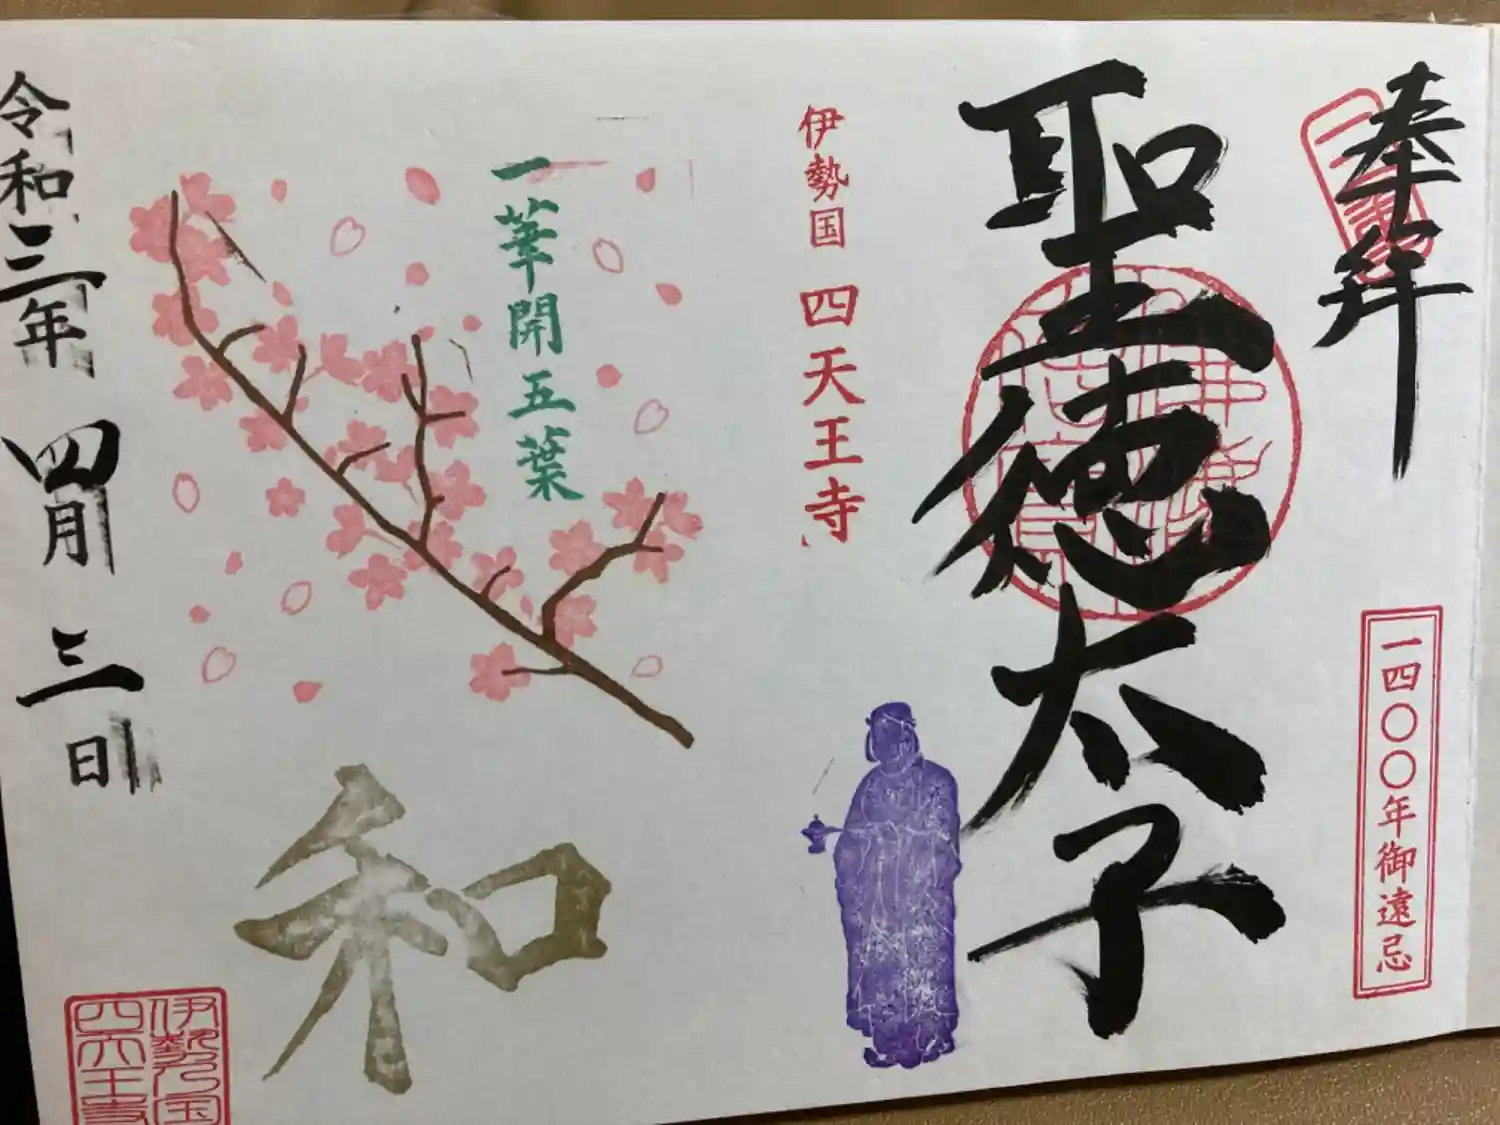 奉拝
一四〇〇年御遠忌
聖徳太子
伊勢国 四天王寺
一華開五葉
和
令和三年 四月 三日
伊勢乃国
四天王寺